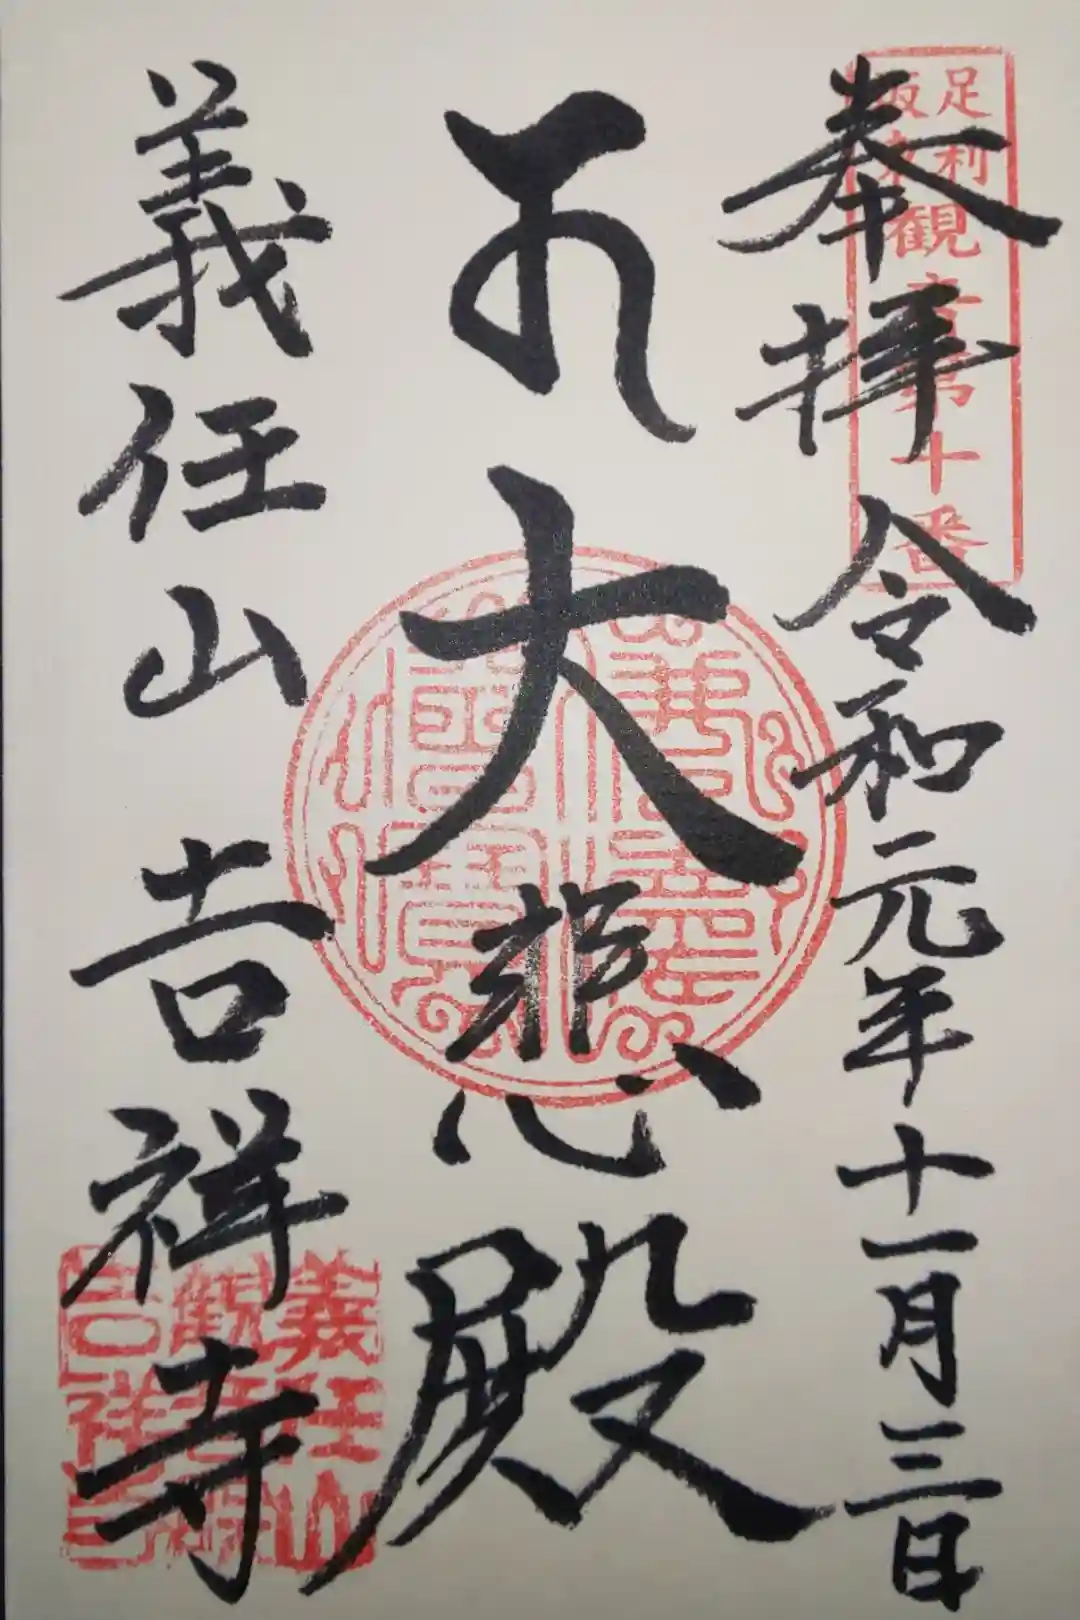 奉拝 令和元年十一月三日
足利坂東観音第十番
大悲殿
義任山吉祥寺
義任山
観音院
吉祥寺